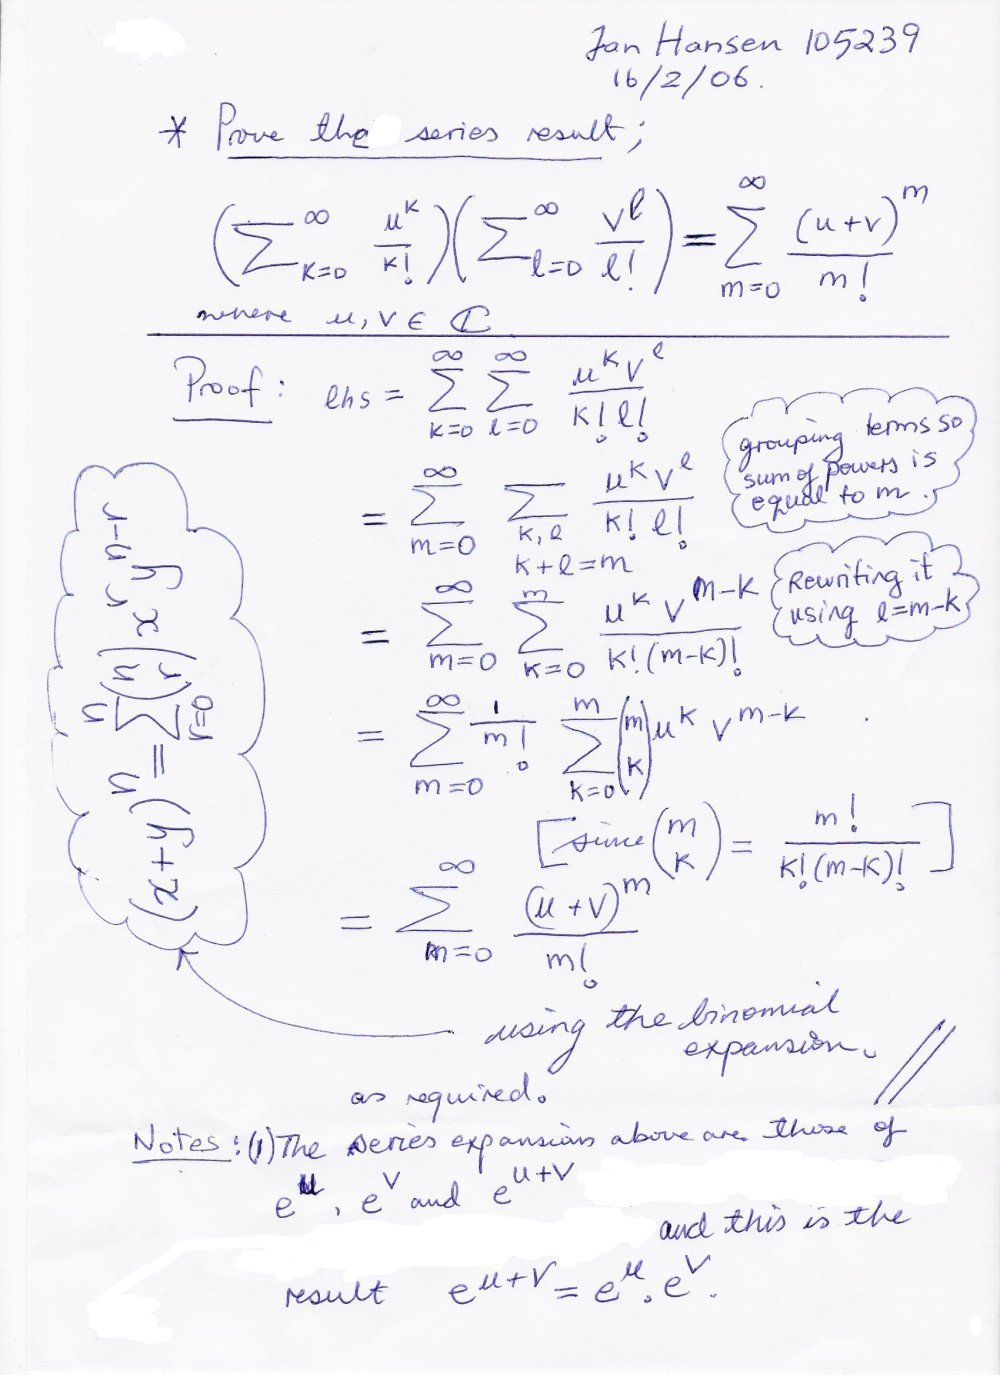 Jan Hansen 105239
16/2/06.
* Prove the series result;
(∑_{k=0}^{∞} u^k/k!)(∑_{l=0}^{∞} v^l/l!) = ∑_{m=0}^{∞} (u+v)^m/m!
where u, v ∈ ℂ
Proof: lhs = ∑_{k=0}^{∞} ∑_{l=0}^{∞} u^k v^l/k! l!
grouping terms so
sum of powers is
equal to m.
= ∑_{m=0}^{∞} ∑_{k, l k+l=m} u^k v^l/k! l!
Rewriting it
using l=m-k
= ∑_{m=0}^{∞} ∑_{k=0}^{m} u^k v^{m-k}/k!(m-k)!
= ∑_{m=0}^{∞} 1/m! ∑_{k=0}^{m} (m k) u^k v^{m-k}
[since (m k) = m!/k!(m-k)!]
= ∑_{m=0}^{∞} (u+v)^m/m!
(x+y)^n = ∑_{r=0}^{n} (n r) x^r y^{n-r}
using the binomial
expansion.
as required. //
Notes: (1) The series expansions above are those of
e^u, e^v and e^{u+v}
and this is the
result e^{u+v} = e^u . e^v.